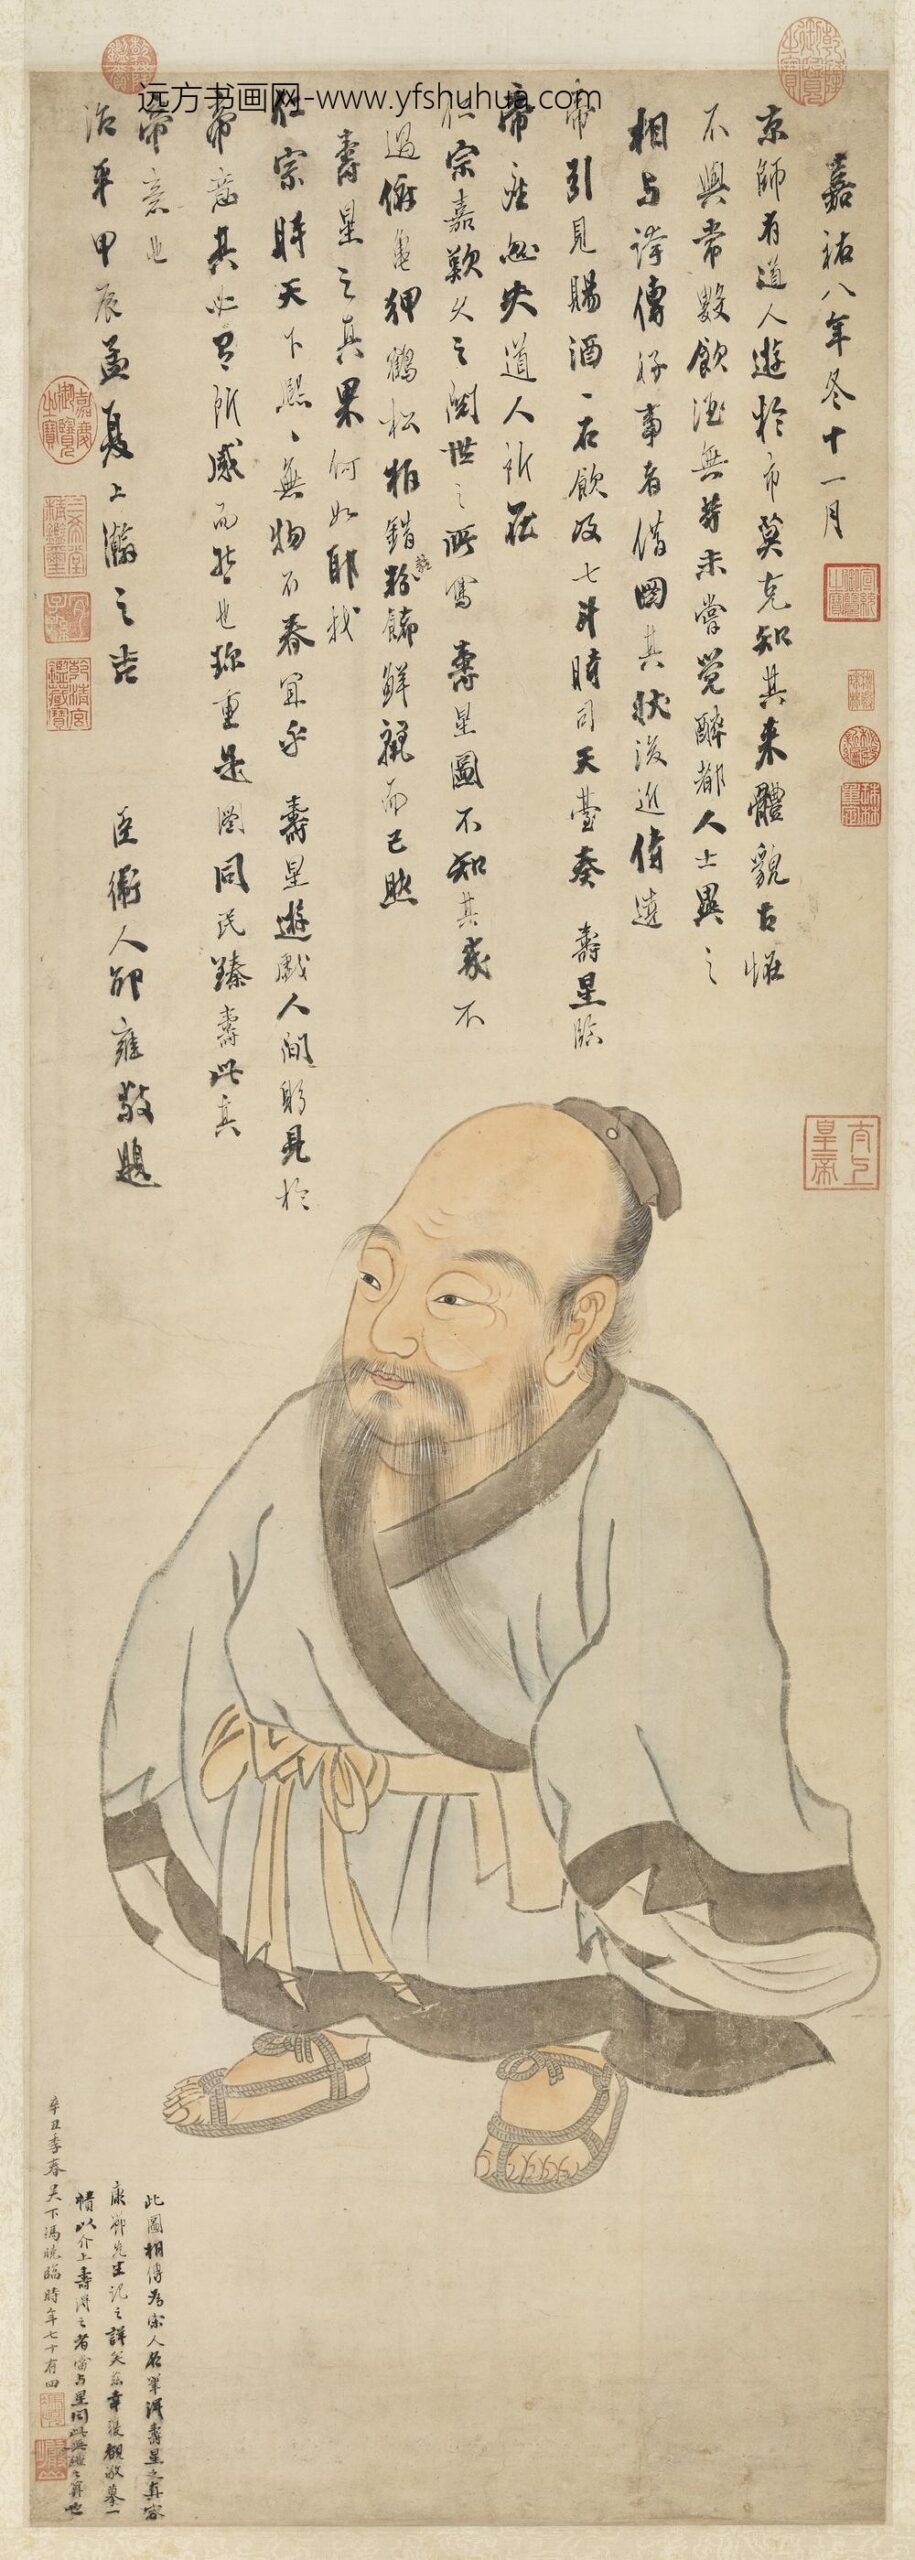 远方书画网-www.yfshuhua.com
嘉祐八年冬十一月
京師有道人遊於市莫克知其来體貌古怪
不與常數飲酒無算未嘗覺醉都人士異之
相与諠傳好事者借圖其狀後近侍達
帝引見賜酒一石飲及七斗時司天臺奏 壽星臨
帝座忽失道人所在
仁宗嘉歎久之閱世之所寫 壽星圖不知其幾不
過俯龜狎鶴松柏錯雜粉飾鮮麗而已然
壽星之真果何如耶我
仁宗時天下熙〻無物不春宜乎 壽星遊戲人間躬見於
帝意其必有所感而然也珎重是圖同民臻壽此真
帝意也
治平甲辰孟夏上澣之吉 臣衢人邵雍敬題
太上皇帝
此圖相傳為宋人名筆得壽星之真容
康節先生記之詳矣茲幸獲覩敬摹一
幀以介上壽得之者當与星同此無疆之算也
辛丑季春吴下馮 臨時年七十有四